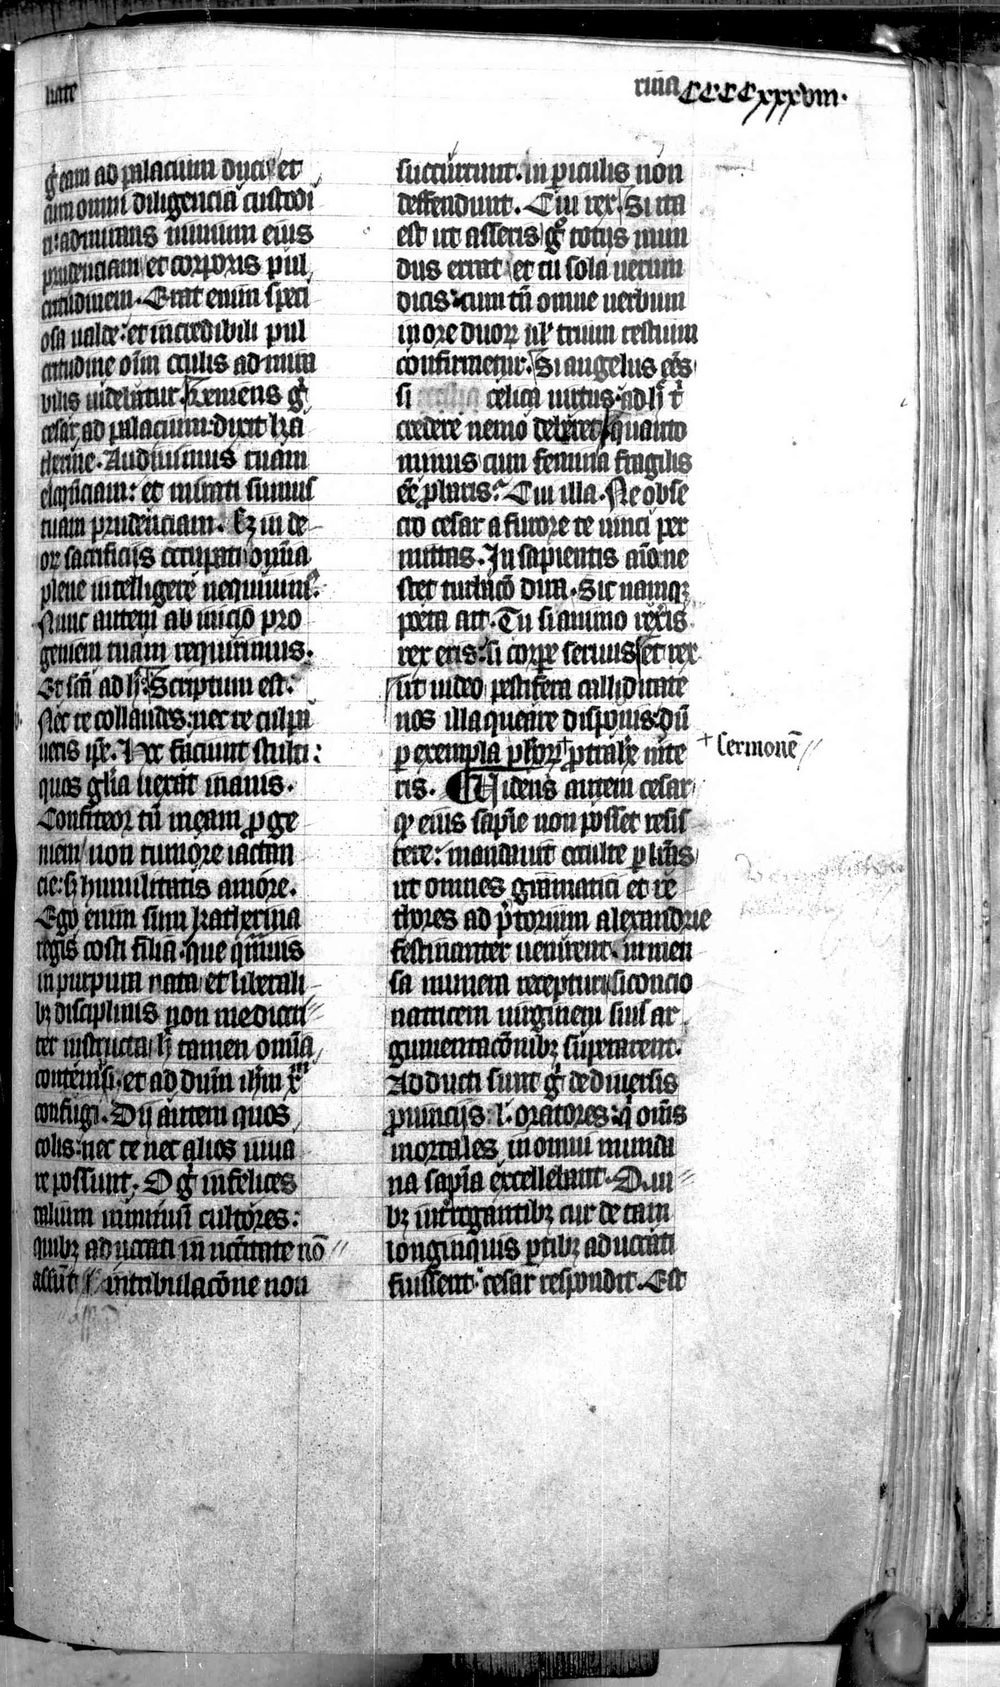 kate
rina CCCCxxxviii.
g̾ eam ad palacium duci / et
cum omni diligencia custodi
ri: admirans nimium eius
prudenciam / et corporis pul
critudinem. Erat enim speci
osa ualde: et incredibili pul
critudine oīm oculis admira
bilis uidebatur. Ueniens g̊
cesar ad palacium: dixit ka
therine. Audiuimus tuam
eloquēciam: et mirati sumus
tuam prudenciam. Sꝫ in de
oꝝ sacrificijs occupati / om̄ia
plene intelligere nequiuimꝰ.
Nunc autem ab inicio pro
geniem tuam requirimus.
Et sc̄a ad h̄. Scriptum est.
Nec te collaudes: nec te culpa
ueris ip̄e. Hoc faciunt stulti:
quos gl̄ia uexat inanis.
Confiteor tn̄ meam ꝓge
niem / non tumore iactan
cie: sꝫ humilitatis amore.
Ego enim sum katherina
regis costi filia. que q̄muis
in purpura nata / et liberali
bꝫ disciplinis non mediocri
ter instructa / h̄ tamen om̄ia
contempsi. et ad dn̄m ih̄m xm̄
confugi. Dij autem quos
colis: nec te nec alios iuua
re possunt. O g̊ infelices
talium numinū cultores:
quibꝫ aduocati in nc̄citate nō
assūt / in tribulacōne non
succurrunt. in p̱iculis non
deffendunt. Cui rex. Si ita
est ut asseris / g̊ totus mun
dus errat / et tu sola uerum
dicis: cum tn̄ omne uerbum
in ore duoꝝ ul̄ trium testium
confirmetur. Si angelus eēs
si celica uirtus. adh̄ t̄
credere nemo deberet / quanto
minus cum femina fragilis
eē ꝓbaris. Cui illa. Ne obse
cro cesar a furore te uinci per
mittas. In sapientis aīo ne
stet turbacō dira. Sic namqꝫ
poeta ait. Tu si animo rexeris
rex eris: si corꝑe seruus. Et rex
ut uideo pestifera calliditate
nos illaqueare disponis. dū
ꝑ exempla ph̄oꝝ + ꝓtrahere nite
+ sermonē //
ris. Uidens autem cesar
qꝫ eius sapīe non posset resis
tere: mandauit occulte ꝑ lr̄as
ut omnes gramatici et re
thores ad p̄torium alexandrie
festinanter uenirent. inmen
sa munera recepturi / si concio
natricem uirginem suis ar
gumentacōnibꝫ superarent.
Adducti sunt g̊ de diuersis
ꝓuincijs .l. oratores: q̄ om̄s
mortales in omni munda
na sapīa excellebant. Qui
bꝫ int̄rogantibꝫ cur de tam
longinquis ꝑtibꝫ aduocati
fuissent. cesar respondit. Est